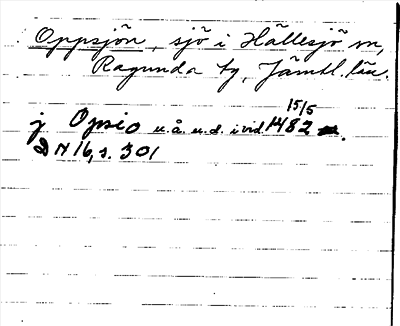 Oppsjön, sjö i Hällesjö sn,
Ragunda tg, Jämtl. län.
15/5
j Opsio u.å. u.d. i vid. 1482
DN 16, s. 301